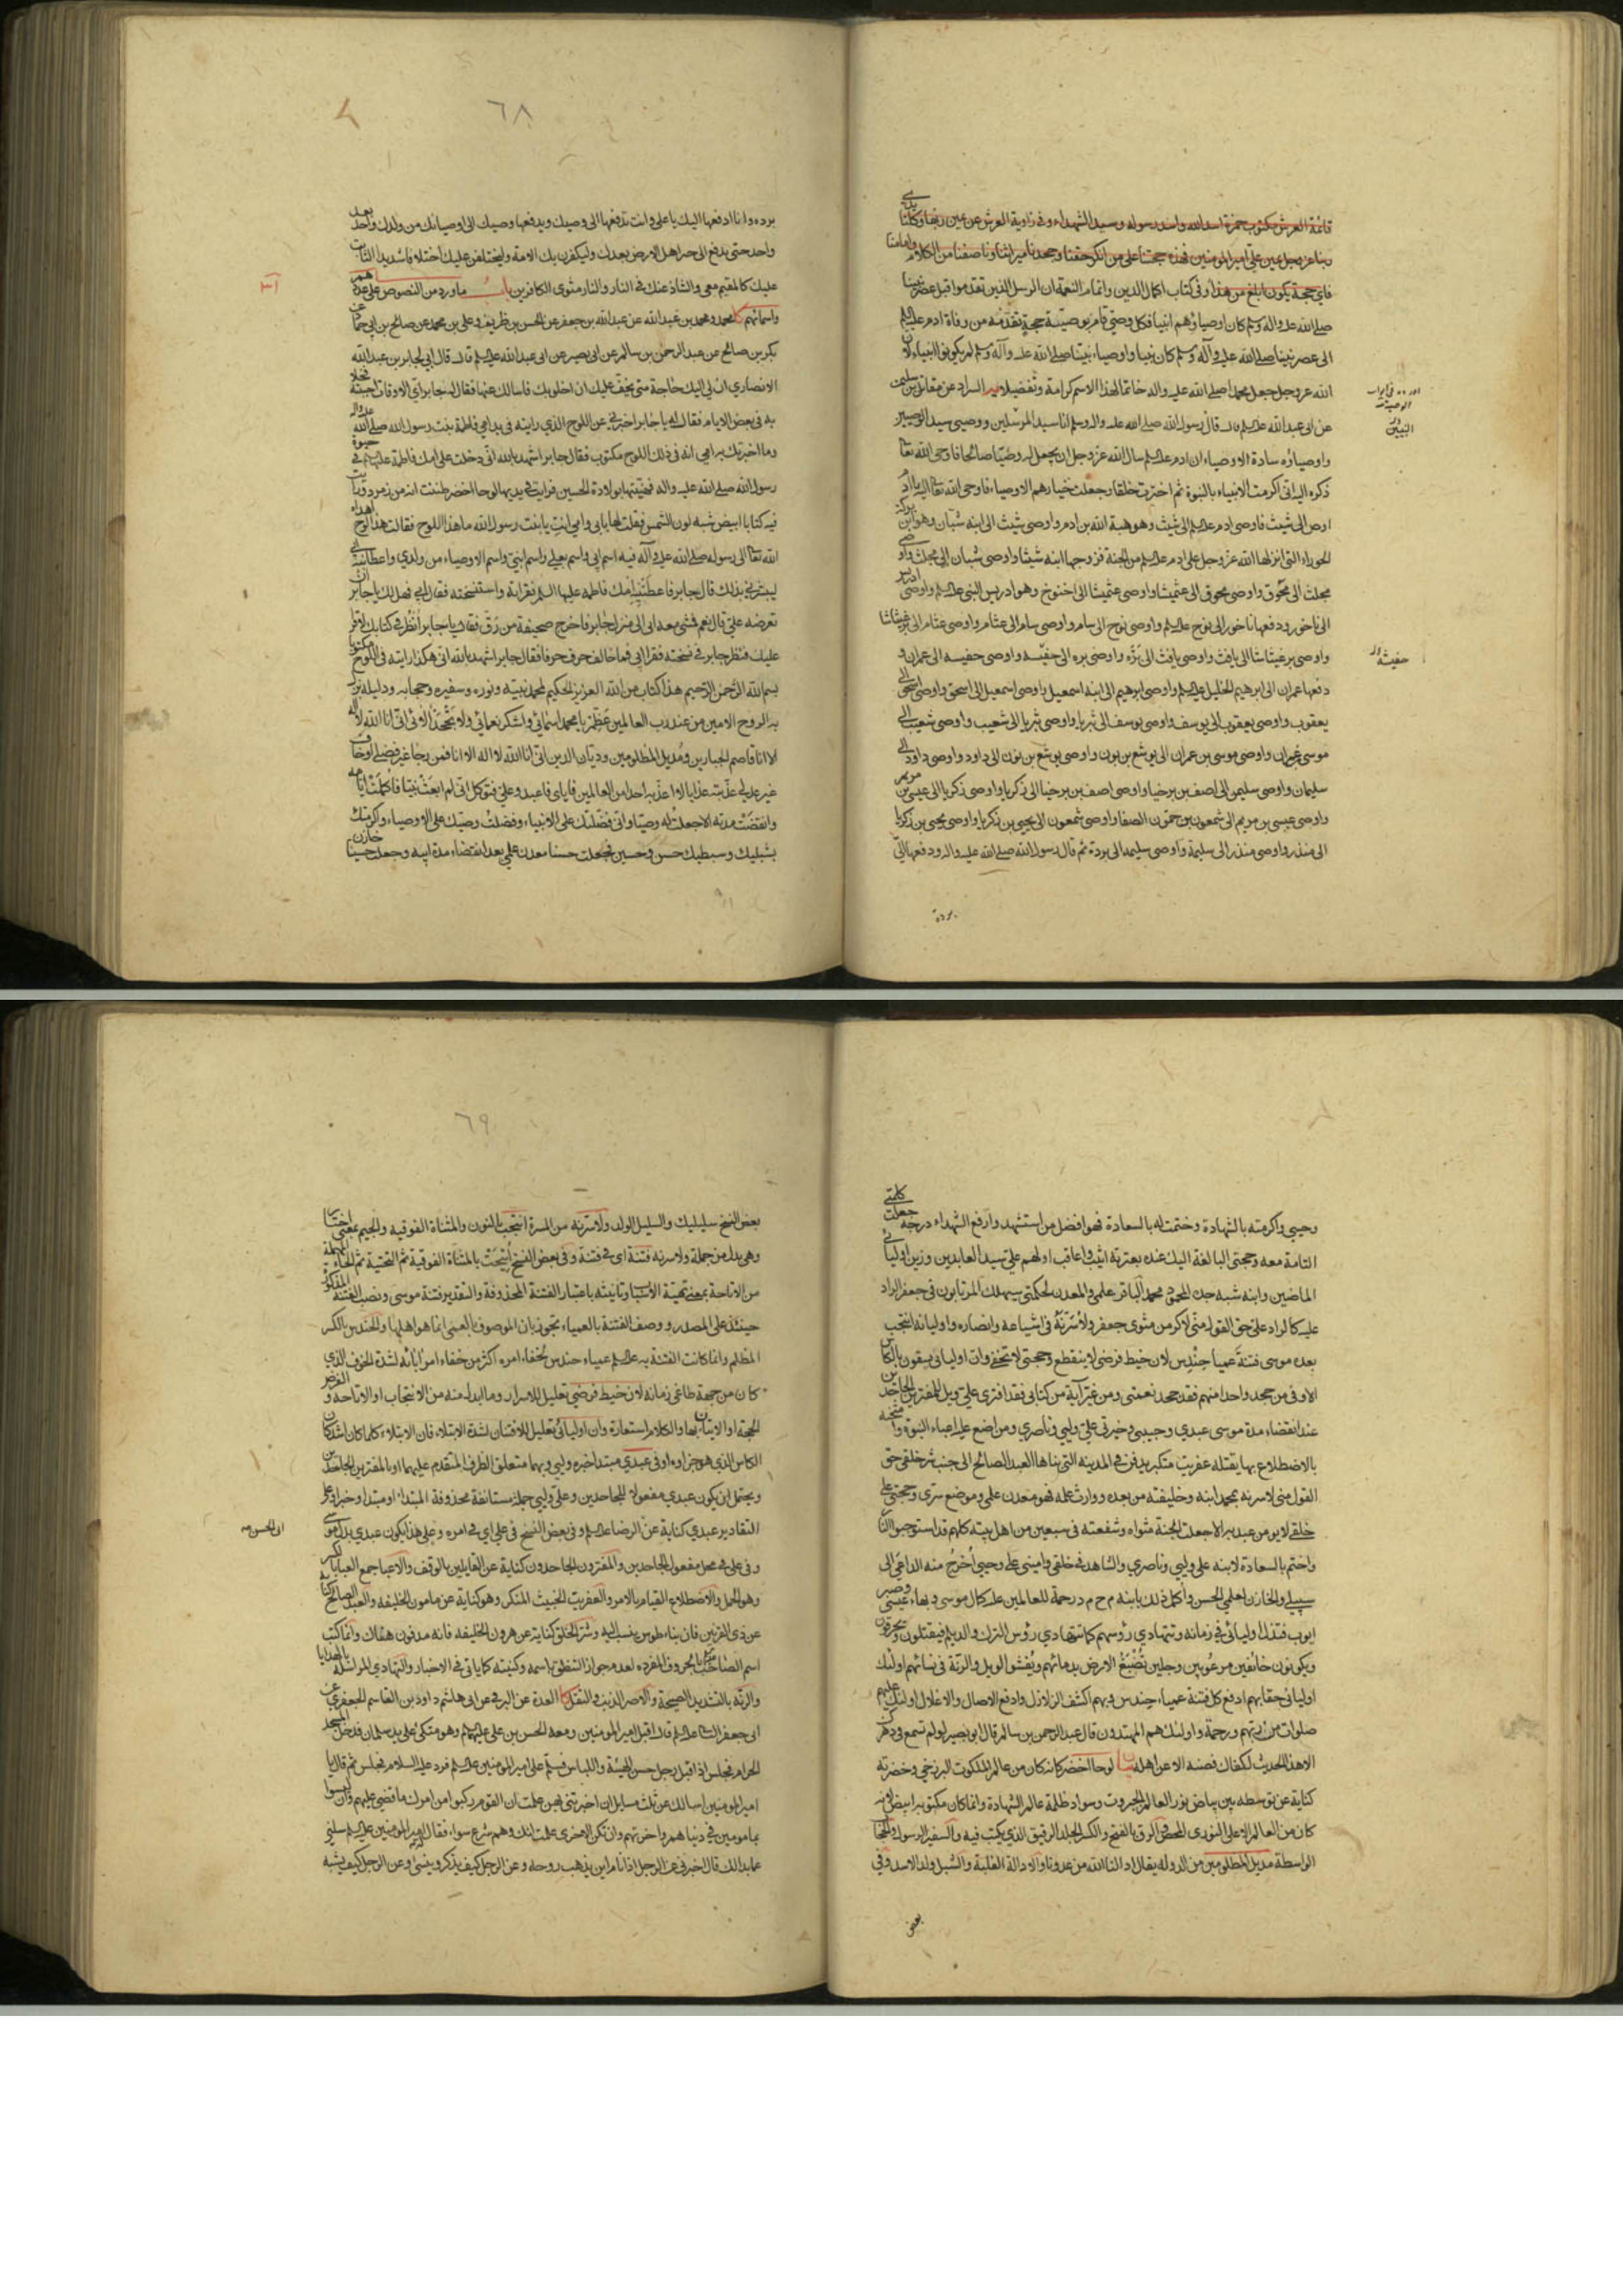 قائمة العرش مكتوب حمزة اسد الله واسد رسوله وسيد الشهداء وفي زاوية العرش عن يمين ربها وكلتا يدي
ربنا عز وجل يمين علي امير المومنين فهذه حجتنا على من انكر حقنا وجحدنا ميراثنا وناصفنا من الكلام وامامنا
فاي حجة يكون ابلغ من هذا وفي كتاب اكمال الدين واتمام النعمة ان الرسل الذين تقدموا قبل عصر نبينا
صلى الله عليه وآله وسلم كان اوصياؤهم انبيا فكل وصي قام بوصية حجة تقدمه من وفاة ادم عليه السلم
الى عصر نبينا صلى الله عليه وآله وسلم كان نبيا واوصياء نبينا صلى الله عليه وآله وسلم لم يكونوا انبياء لان
الله عز وجل جعل محمدا صلى الله عليه واله خاتما لهذا الاسم كرامة وتفضيلا يه السراد عن مقاتل بن سليمن
عن ابي عبد الله عليه السلم قال قال رسول الله صلى الله عليه واله وسلم انا سيد المرسلين ووصيي سيد الوصيين
واوصياؤه سادة الاوصياء ان ادم عليه السلم سال الله عز وجل ان يجعل له وصيا صالحا فاوحى الله تعالى
ذكره اليه اني اكرمت الانبياء بالنبوة ثم اخترت خلقا وجعلت خيارهم الاوصياء فاوحى الله تعالى اليه يا ادم
اوص الى شيث فاوصى ادم عليه السلم الى شيث وهو هبة الله بن ادم واوصى شيث الى ابنه شبان وهو ابن نزلة
الحوراء التي انزلها الله عز وجل على ادم عليه السلم من الجنة فزوجها ابنه شيثا واوصى شبان الى مجلث واوصى
مجلث الى محوق واوصى محوق الى عثميشا واوصى عثميشا الى اخنوخ وهو ادريس النبي عليه السلم واوصى ادريس
الى ناخور ودفعها ناخور الى نوح عليه السلم واوصى نوح الى سام واوصى سام الى عثامر واوصى عثامر الى برغيثاشا
واوصى برغيثاشا الى يافث واوصى يافث الى بره واوصى بره الى حفيسه واوصى حفيسه الى عمران و
دفعها عمران الى ابرهيم الخليل عليه السلم واوصى ابرهيم الى ابنه اسمعيل واوصى اسمعيل الى اسحق واوصى اسحق الى
يعقوب واوصى يعقوب الى يوسف واوصى يوسف الى ثريا واوصى ثريا الى شعيب واوصى شعيب الى
موسى عمران واوصى موسى بن عمران الى يوشع بن نون واوصى يوشع بن نون الى داود واوصى داود الى
سليمان واوصى سليمن الى اصف بن برخيا واوصى اصف بن برخيا الى زكريا واوصى زكريا الى عيسى بن مريم
واوصى عيسى بن مريم الى شمعون بن حمون الصفا واوصى شمعون الى يحيى بن زكريا واوصى يحيى بن زكريا
الى منذر واوصى منذر الى سليمة واوصى سليمه الى بردة ثم قال رسول الله صلى الله عليه واله ودفعها الي
بردة
حفيسة
٦٨
برده وانا ادفعها اليك يا علي وانت تدفعها الى وصيك ويدفعها وصيك الى اوصيائك من ولدك واحد بعد
واحد حتى يدفع الى خير اهل الارض بعدك وليكفرن بك الامة وليختلفن عليك اختلافا شديدا الثابت
عليك كالمقيم معي والشاذ عنك في النار والنار مثوى الكافرين باب ما ورد من النصوص على عددهم
واسمائهم كا محمد ومحمد بن عبد الله عن عبد الله بن جعفر عن الحسن بن ظريف وعلي بن محمد عن صالح بن ابي حماد عن
بكر بن صالح عن عبد الرحمن بن سالم عن ابي بصير عن ابي عبد الله عليه السلم قال قال ابي لجابر بن عبد الله
الانصاري ان لي اليك حاجة متى يخف عليك ان اخلو بك فاسالك عنها فقال له جابر اي الاوقات احببته فخلا
به في بعض الايام فقال له يا جابر اخبرني عن اللوح الذي رايته في يد امي فاطمة بنت رسول الله صلى الله عليه واله
وما اخبرتك به امي انه في ذلك اللوح مكتوب فقال جابر اشهد بالله اني دخلت على امك فاطمة عليها السلم في حيوة
رسول الله صلى الله عليه واله فهنيتها بولادة الحسين فرايت في يديها لوحا اخضر ظننت انه من زمرد ورايت
فيه كتابا ابيض شبه لون الشمس فقلت لها بابي وامي انت يا بنت رسول الله ما هذا اللوح فقالت هذا لوح اهداه
الله تعالى الى رسوله صلى الله عليه وآله فيه اسم ابي واسم بعلي واسم ابني واسم الاوصياء من ولدي واعطانيه ابي
ليبشرني بذلك قال جابر فاعطتنيه امك فاطمه عليها السلم فقراته واستنسخته فقال ابي فهل لك يا جابر ان
تعرضه علي قال نعم فمشى معه ابي الى منزل جابر فاخرج صحيفة من رق فقال يا جابر انظر في كتابك لاقرا
عليك فنظر جابر في نسخته فقرا ابي فما خالف حرف حرفا فقال جابر اشهد بالله اني هكذا رايته في اللوح مكتوبا
بسم الله الرحمن الرحيم هذا كتاب من الله العزيز الحكيم لمحمد نبيه ونوره وسفيره وحجابه ودليله نزل
به الروح الامين من عند رب العالمين عظم يا محمد اسمائي واشكر نعمائي ولا تجحد الائي اني انا الله لا اله
الا انا قاصم الجبارين ومديل المظلومين وديان الدين اني انا الله لا اله الا انا فمن رجا غير فضلي او خاف
غير عدلي عذبته عذابا لا اعذبه احدا من العالمين فاياي فاعبد وعلي فتوكل اني لم ابعث نبيا فاكملت ايامه
وانقضت مدته الا جعلت له وصيا واني فضلتك على الانبياء وفضلت وصيك على الاوصياء واكرمتك
بشبليك وسبطيك حسن وحسين فجعلت حسنا معدن علمي بعد انقضاء مدة ابيه وجعلت حسينا خازن
وحيي واكرمته بالشهادة وختمت له بالسعادة فهو افضل من استشهد وارفع الشهداء درجة جعلت كلمتي
التامة معه وحجتي البالغة اليك عنده بعترته اثيب واعاقب اولهم علي سيد العابدين وزين اوليائي
الماضين وابنه شبه جده المحمود محمد الباقر علمي والمعدن لحكمتي سيهلك المرتابون في جعفر الراد
عليه كالراد علي حق القول مني لاكرمن مثوى جعفر ولاسرنه في اشياعه وانصاره واوليائه انتجب
بعده موسى فتنة عمياء حندس لان خيط فرضي لا ينقطع وحجتي لا تخفى وان اوليائي يسقون بالكاس
الاوفى من جحد واحدا منهم فقد جحد نعمتي ومن غير آية من كتابي فقد افترى علي ويل للمفترين الجاحدين
عند انقضاء مدة موسى عبدي وحبيبي وخيرتي في علي وليي وناصري ومن اضع عليه اعباء النبوة وامتحنه
بالاضطلاع بها يقتله عفريت متكبر يدفن في المدينة التي بناها العبد الصالح الى جنب شر خلقي حق
القول مني لاسرنه بمحمد ابنه وخليفته من بعده ووارث علمه فهو معدن علمي وموضع سري وحجتي على
خلقي لا يومن عبد به الا جعلت الجنة مثواه وشفعته في سبعين من اهل بيته كلهم قد استوجبوا النار
واختم بالسعادة لابنه علي وليي وناصري والشاهد في خلقي واميني على وحيي اخرج منه الداعي الى
سبيلي والخازن لعلمي الحسن واكمل ذلك بابنه م ح م د رحمة للعالمين عليه كمال موسى وبهاء عيسى وصبر
ايوب فتذل اوليائي في زمانه وتتهادى رؤسهم كما تتهادى رؤس الترك والديلم فيقتلون ويحرقون
ويكونون خائفين مرعوبين وجلين تصبغ الارض بدمائهم ويفشو الويل والرنة في نسائهم اولئك
اوليائي حقا بهم ادفع كل فتنة عمياء حندس وبهم اكشف الزلازل وادفع الاصال والاغلال اولئك عليهم
صلوات من ربهم ورحمة واولئك هم المهتدون قال عبد الرحمن بن سالم قال ابو بصير لو لم تسمع في دهرك
الا هذا الحديث لكفاك فصنه الا عن اهله بيان لوحا اخضر كانه كان من عالم الملكوت البرزخي وخضرته
كناية عن توسطه بين بياض نور العالم الجبروت وسواد ظلمة عالم الشهادة وانما كان مكتوبه ابيض لانه
كان من العالم الاعلى النوري المحض الرق بالفتح والكسر الجلد الرقيق الذي يكتب فيه والسفير الرسول والحجاب
الواسطة مديل المظلومين من الدولة يقال ادالنا الله من عدونا والادالة الغلبة والشبل ولد الاسد وفي
بعض
٦٩
بعض النسخ سليليك والسليل الولد ولاسرنه من المسرة انتجب بالنون والمثناة الفوقية والجيم بمعنى اختار
وهي بدل من جملة ولاسرنه فتنة اي في فتنة وفي بعض النسخ اتيحت بالمثناة الفوقية ثم التحتية ثم الحاء المهملة
من الاتاحة بمعنى تهيئة الاسباب وتانيثه باعتبار الفتنة المحذوفة والتقدير فتنة موسى ونصب الفتنة المذكورة
حينئذ على المصدر ووصف الفتنة بالعمياء تجوز بان الموصوف بالعمى انما هو اهلها والحندس بالكسر
المظلم وانما كانت الفتنة به عليه السلم عمياء حندس لخفاء امره اكثر من خفاء امر ابائه لشدة الخوف الذي
كان من جهة طاغي زمانه لان خيط فرضي تعليل للاسرار وما ابدل منه من الانتجاب او الاتاحة والفرض
الحجة او الايتان بها والكلام استعارة وان اوليائي تعليل للافتتان لشدة الابتلاء فان الابتلاء كلما كان اشد كان
الكاس الذي هو جزاوه اوفى عبدي مبتدا خبره وليي وبهما متعلق الظرف المتقدم عليهما او بالمفترين الجاحدين
ويحتمل ان يكون عبدي مفعولا للجاحدين وعلي وليي جملة مستانفة محذوفة المبتدا او مبتدا وخبرا وعلى
التقادير عبدي كناية عن الرضا عليه السلم وفي بعض النسخ في علي اي في امره وعلى هذا يكون عبدي بدل موسى
وفي علي في محل مفعول الجاحدين والمفترون الجاحدون كناية عن القايلين بالوقف والاعباء جمع العباء بالكسر
وهو الحمل والاضطلاع القيام بالامر والعفريت الخبيث المنكر وهو كناية عن مامون الخليفة والعبد الصالح كناية
عن ذي القرنين فان بناء طوس ينسب اليه وشر الخلق كناية عن هرون الخليفة فانه مدفون هناك وانما كتب
اسم الصاحب بالحروف المفردة لعدم جواز التنطق باسمه وكنيته كما ياتي في الاخبار والتهادي المراسلة بالهدايا
والرنة بالتشديد الصيحة والاصر الذنب والثقل كا العدة عن البرقي عن ابي هاشم داود بن القاسم الجعفري عن
ابي جعفر الثاني عليه السلم قال اقبل امير المومنين ومعه الحسن بن علي عليهم السلم وهو متكئ على يد سلمان فدخل المسجد
الحرام فجلس اذ اقبل رجل حسن الهيئة واللباس فسلم على امير المومنين عليه السلم فرد عليه السلام فجلس ثم قال يا
امير المومنين اسالك عن ثلث مسايل ان اخبرتني بهن علمت ان القوم ركبوا من امرك ما قضي عليهم وان ليسوا
بمامونين في دنياهم واخرتهم وان تكن الاخرى علمت انك وهم شرع سواء فقال له امير المومنين عليه السلم سلني
عما بدا لك قال اخبرني عن الرجل اذا نام اين يذهب روحه وعن الرجل كيف يذكر وينسى وعن الرجل كيف يشبه